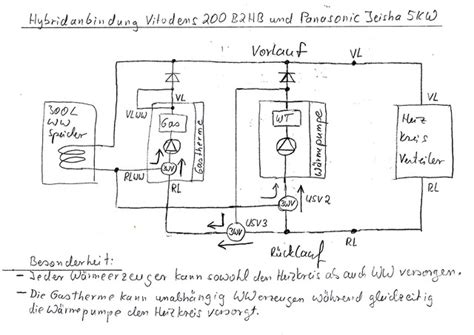 Hybridanbindung Vitodens 200 B2HB und Panasonic Jeisha 5KW
Vorlauf
VL
VL
VL
300L
WW
Speicher
VLWW
Gas
Gastherme
WT
Wärmepumpe
Heiz
Kreis
Verteiler
RLWW
3WV
RL
RL
USV2
3WV
USV3
3WV
RL
Rücklauf
Besonderheit:
- Jeder Wärmeerzeuger kann sowohl den Heizkreis als auch WW versorgen.
- Die Gastherme kann unabhängig WW erzeugen während gleichzeitig
die Wärmepumpe den Heizkreis versorgt.